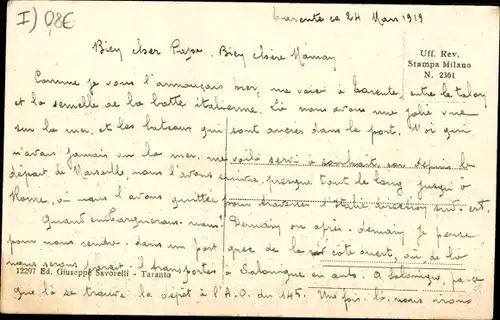 I) 0,8€
Tarente ce 24 Mars 1919
Bien cher Papa, Bien chère Maman
Uff. Rev.
Stampa Milano
N. 2361
Comme je vous l'annonçais hier, me voici à Tarente, entre le talon
et la semelle de la botte italienne. Ici nous avons une jolie vue
sur la mer, et les bateaux qui sont ancrés dans le port. Moi qui
n'avais jamais vu la mer, me voilà servi à souhait, car depuis le
départ de Marseille, nous l'avons suivie, presque tout le long jusqu'à
Rome, où nous l'avons quittée pour traverser l'Italie direction sud-est.
Quand embarquerons-nous? Demain ou après-demain je pense
pour nous rendre dans un port grec de la côte ouest, où de là
nous serons transportés à Salonique en auto. A Salonique, parce
12297 Ed. Giuseppe Savorelli - Taranto
que là se trouve le dépôt à l'A.O. du 145. Une fois là nous irons